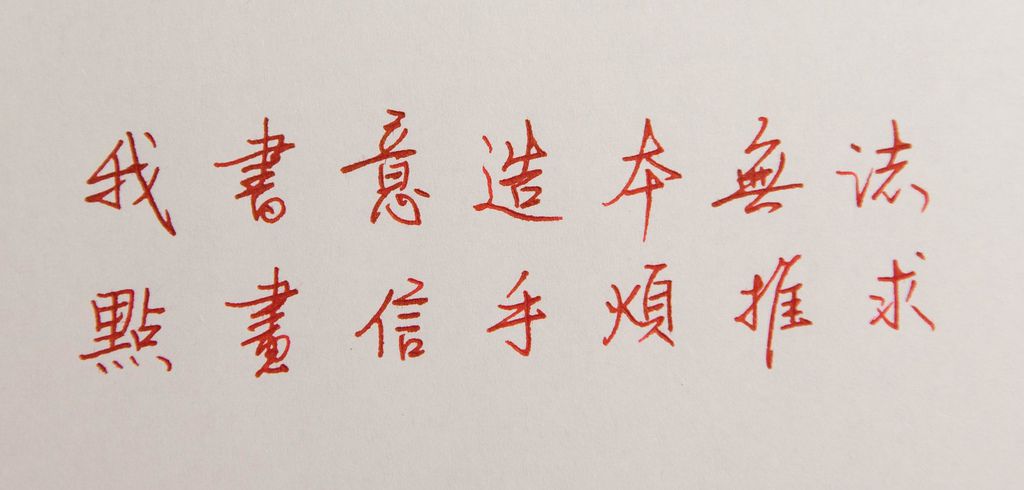 我書意造本無法
點畫信手煩推求